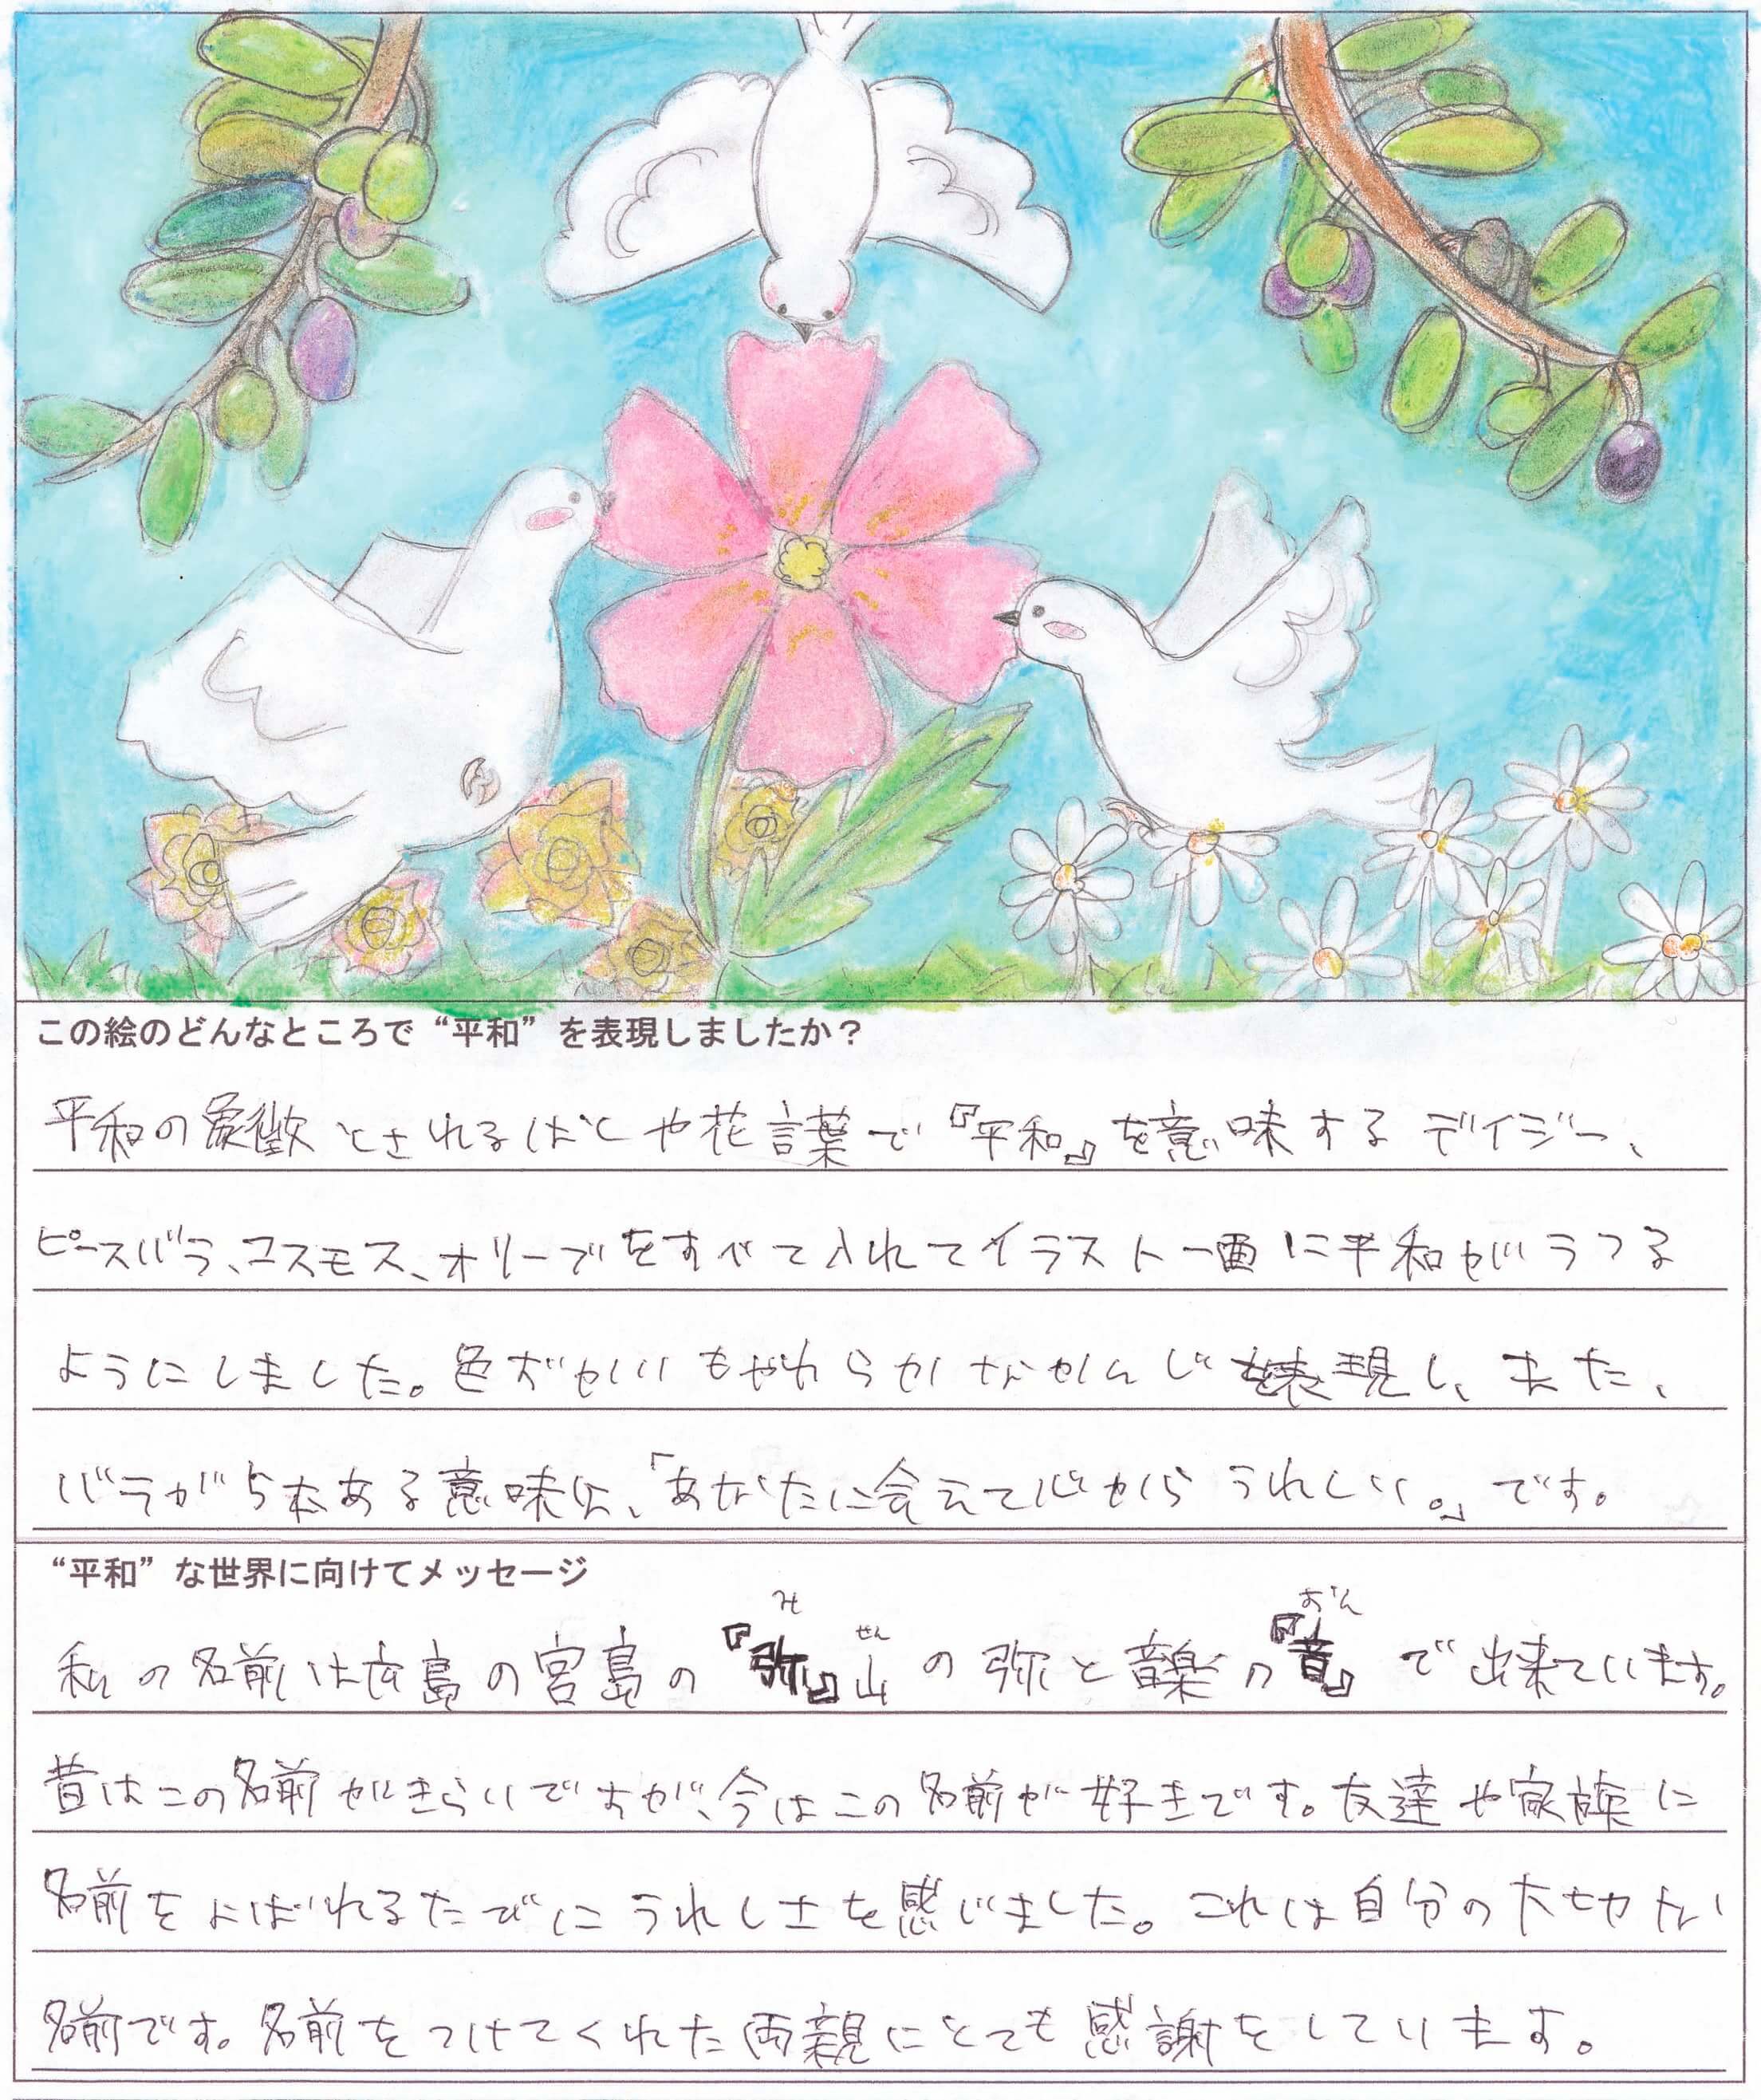 この絵のどんなところで“平和”を表現しましたか？
平和の象徴とされるはとや花言葉で『平和』を意味するデイジー、
ピースバラ、コスモス、オリーブをすべて入れてイラスト一面に平和がうつる
ようにしました。色づかいもやわらかなかんじを表現しました、
バラが5本ある意味は、「あなたに会えて心からうれしい。」です。
“平和”な世界に向けてメッセージ
み せん おん
私の名前は広島の宮島の『弥』山の弥と音楽の『音』で出来ています。
昔はこの名前がきらいですが、今はこの名前が好きです。友達や家族に
名前をよばれるたびにうれしさを感じました。これは自分の大切な
名前です。名前をつけてくれた両親にとても感謝をしています。